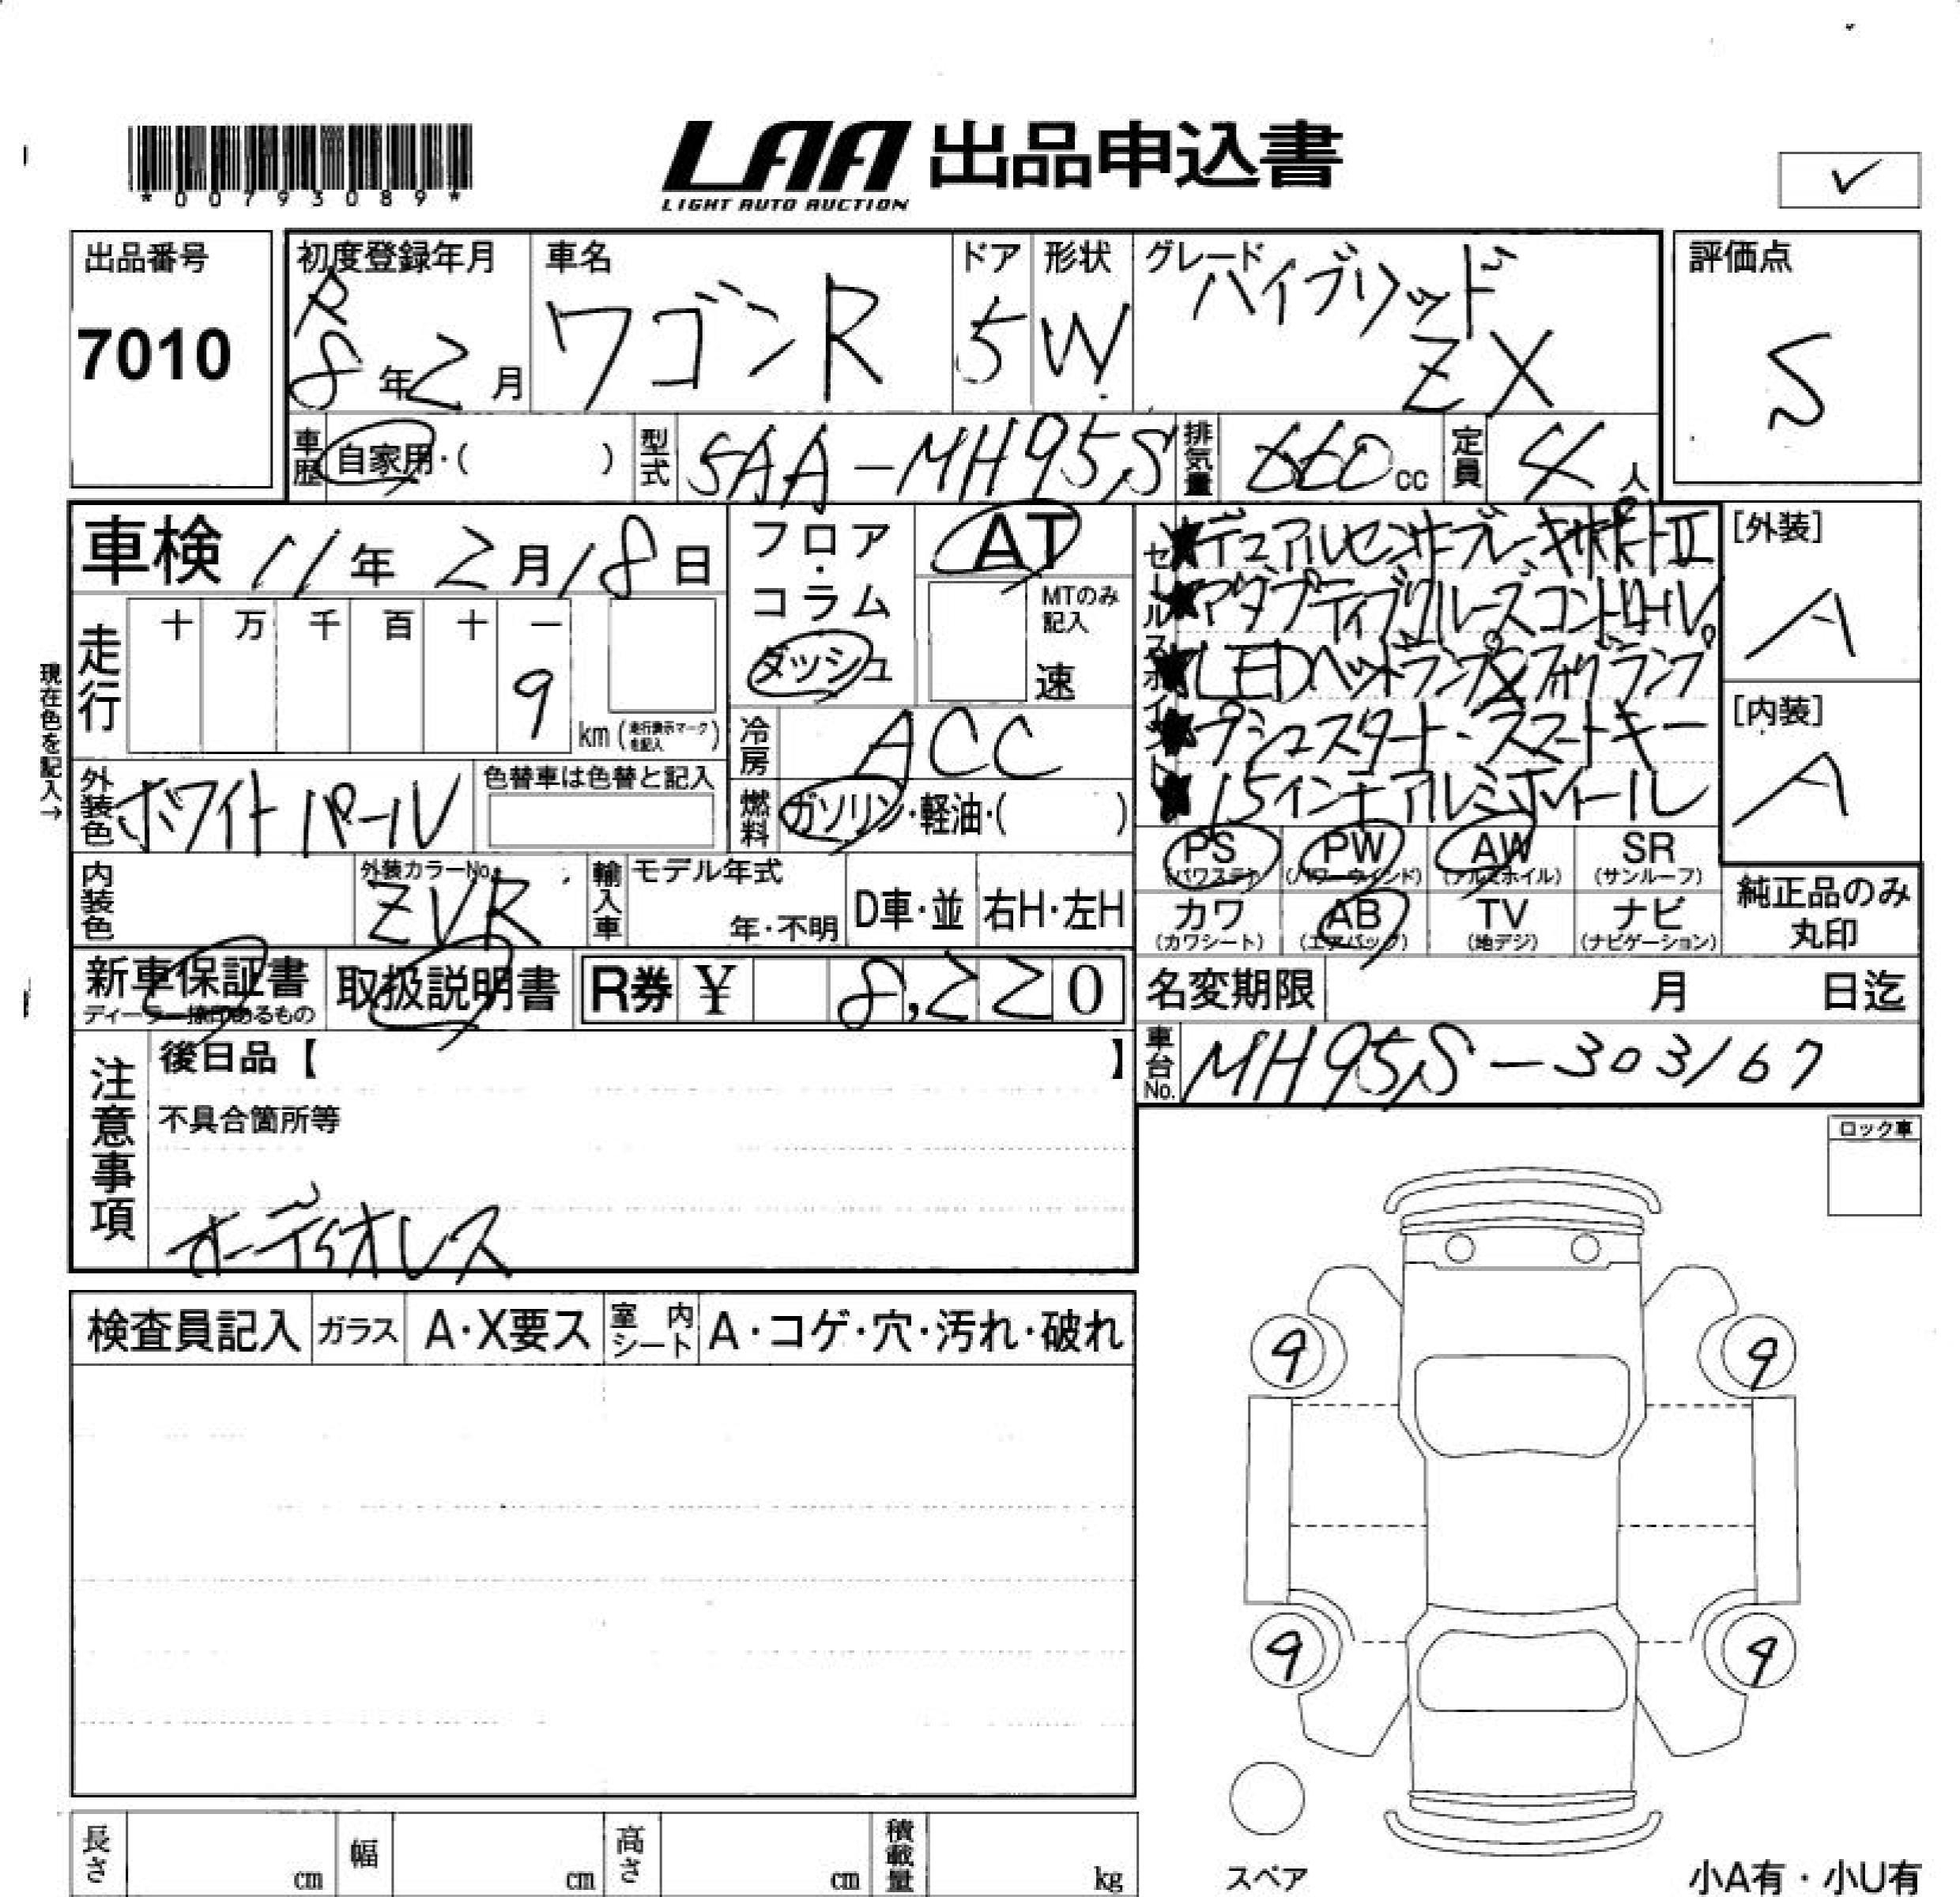 *00793089*
LAA 出品申込書
LIGHT AUTO AUCTION
✓
出品番号
7010
初度登録年月
R
8年2月
車名
ワゴンR
ドア
5
形状
W
グレード
ハイブリッド
ZX
評価点
S
車歴 自家用・( )
型式 5AA-MH95S
排気量 660cc
定員 4人
車検 11年2月18日
フロア・コラム
ダッシュ
AT
MTのみ記入
速
セールスポイント
★デュアルセンサーブレーキサポートII
★アダプティブクルーズコントロール
★LEDヘッドランプ&フォグランプ
★プッシュスタート・スマートキー
★15インチアルミホイール
[外装]
A
[内装]
A
現在色を記入→
走行
十 万 千 百 十 一
9
km(走行表示マークを記入)
冷房 ACC
外装色 ホワイトパール
色替車は色替と記入
燃料 ガソリン・軽油・( )
PS (パワステ)
PW (パワーウィンド)
AW (アルミホイル)
SR (サンルーフ)
カワ (カワシート)
AB (エアバック)
TV (地デジ)
ナビ (ナビゲーション)
純正品のみ
丸印
内装色
外装カラーNo.
ZVR
輸入車
モデル年式
年・不明
D車・並
右H・左H
新車保証書
ディーラー捺印あるもの
取扱説明書
R券 ¥ 8,220
名変期限 月 日迄
車台No. MH95S-303167
注意事項
後日品【 】
不具合箇所等
オーディオレス
ロック車
検査員記入
ガラス
A・X要ス
室内シート
A・コゲ・穴・汚れ・破れ
9 9
9 9
スペア
長さ cm
幅 cm
高さ cm
積載量 kg
小A有・小U有